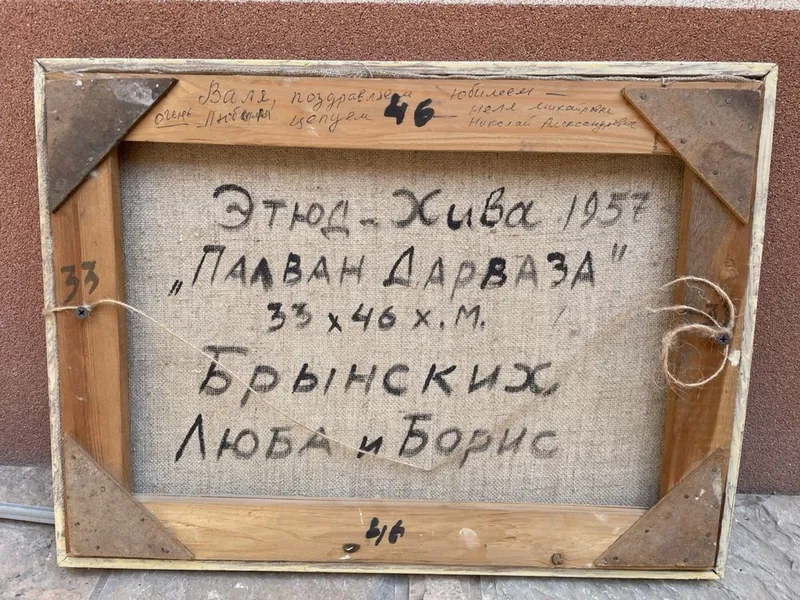 Валя, поздравляем юбилеем —
46
очень Любим целуем — Неля Михайловна
Николай Александрович
Этюд - Хива 1957
33
„Палван Дарваза"
33 х 46 х. м.
Брынских
Люба и Борис
46